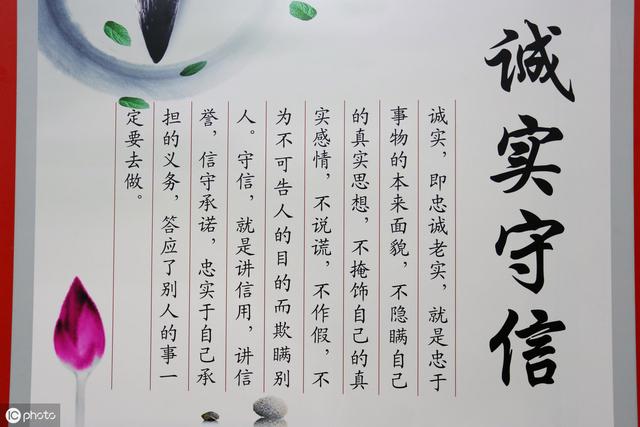 诚实守信
诚实，即忠诚老实，就是忠于
事物的本来面貌，不隐瞒自己
的真实思想，不掩饰自己的真
实感情，不说谎，不作假，不
为不可告人的目的而欺瞒别
人。守信，就是讲信用，讲信
誉，信守承诺，忠实于自己承
担的义务，答应了别人的事一
定要去做。
iC photo